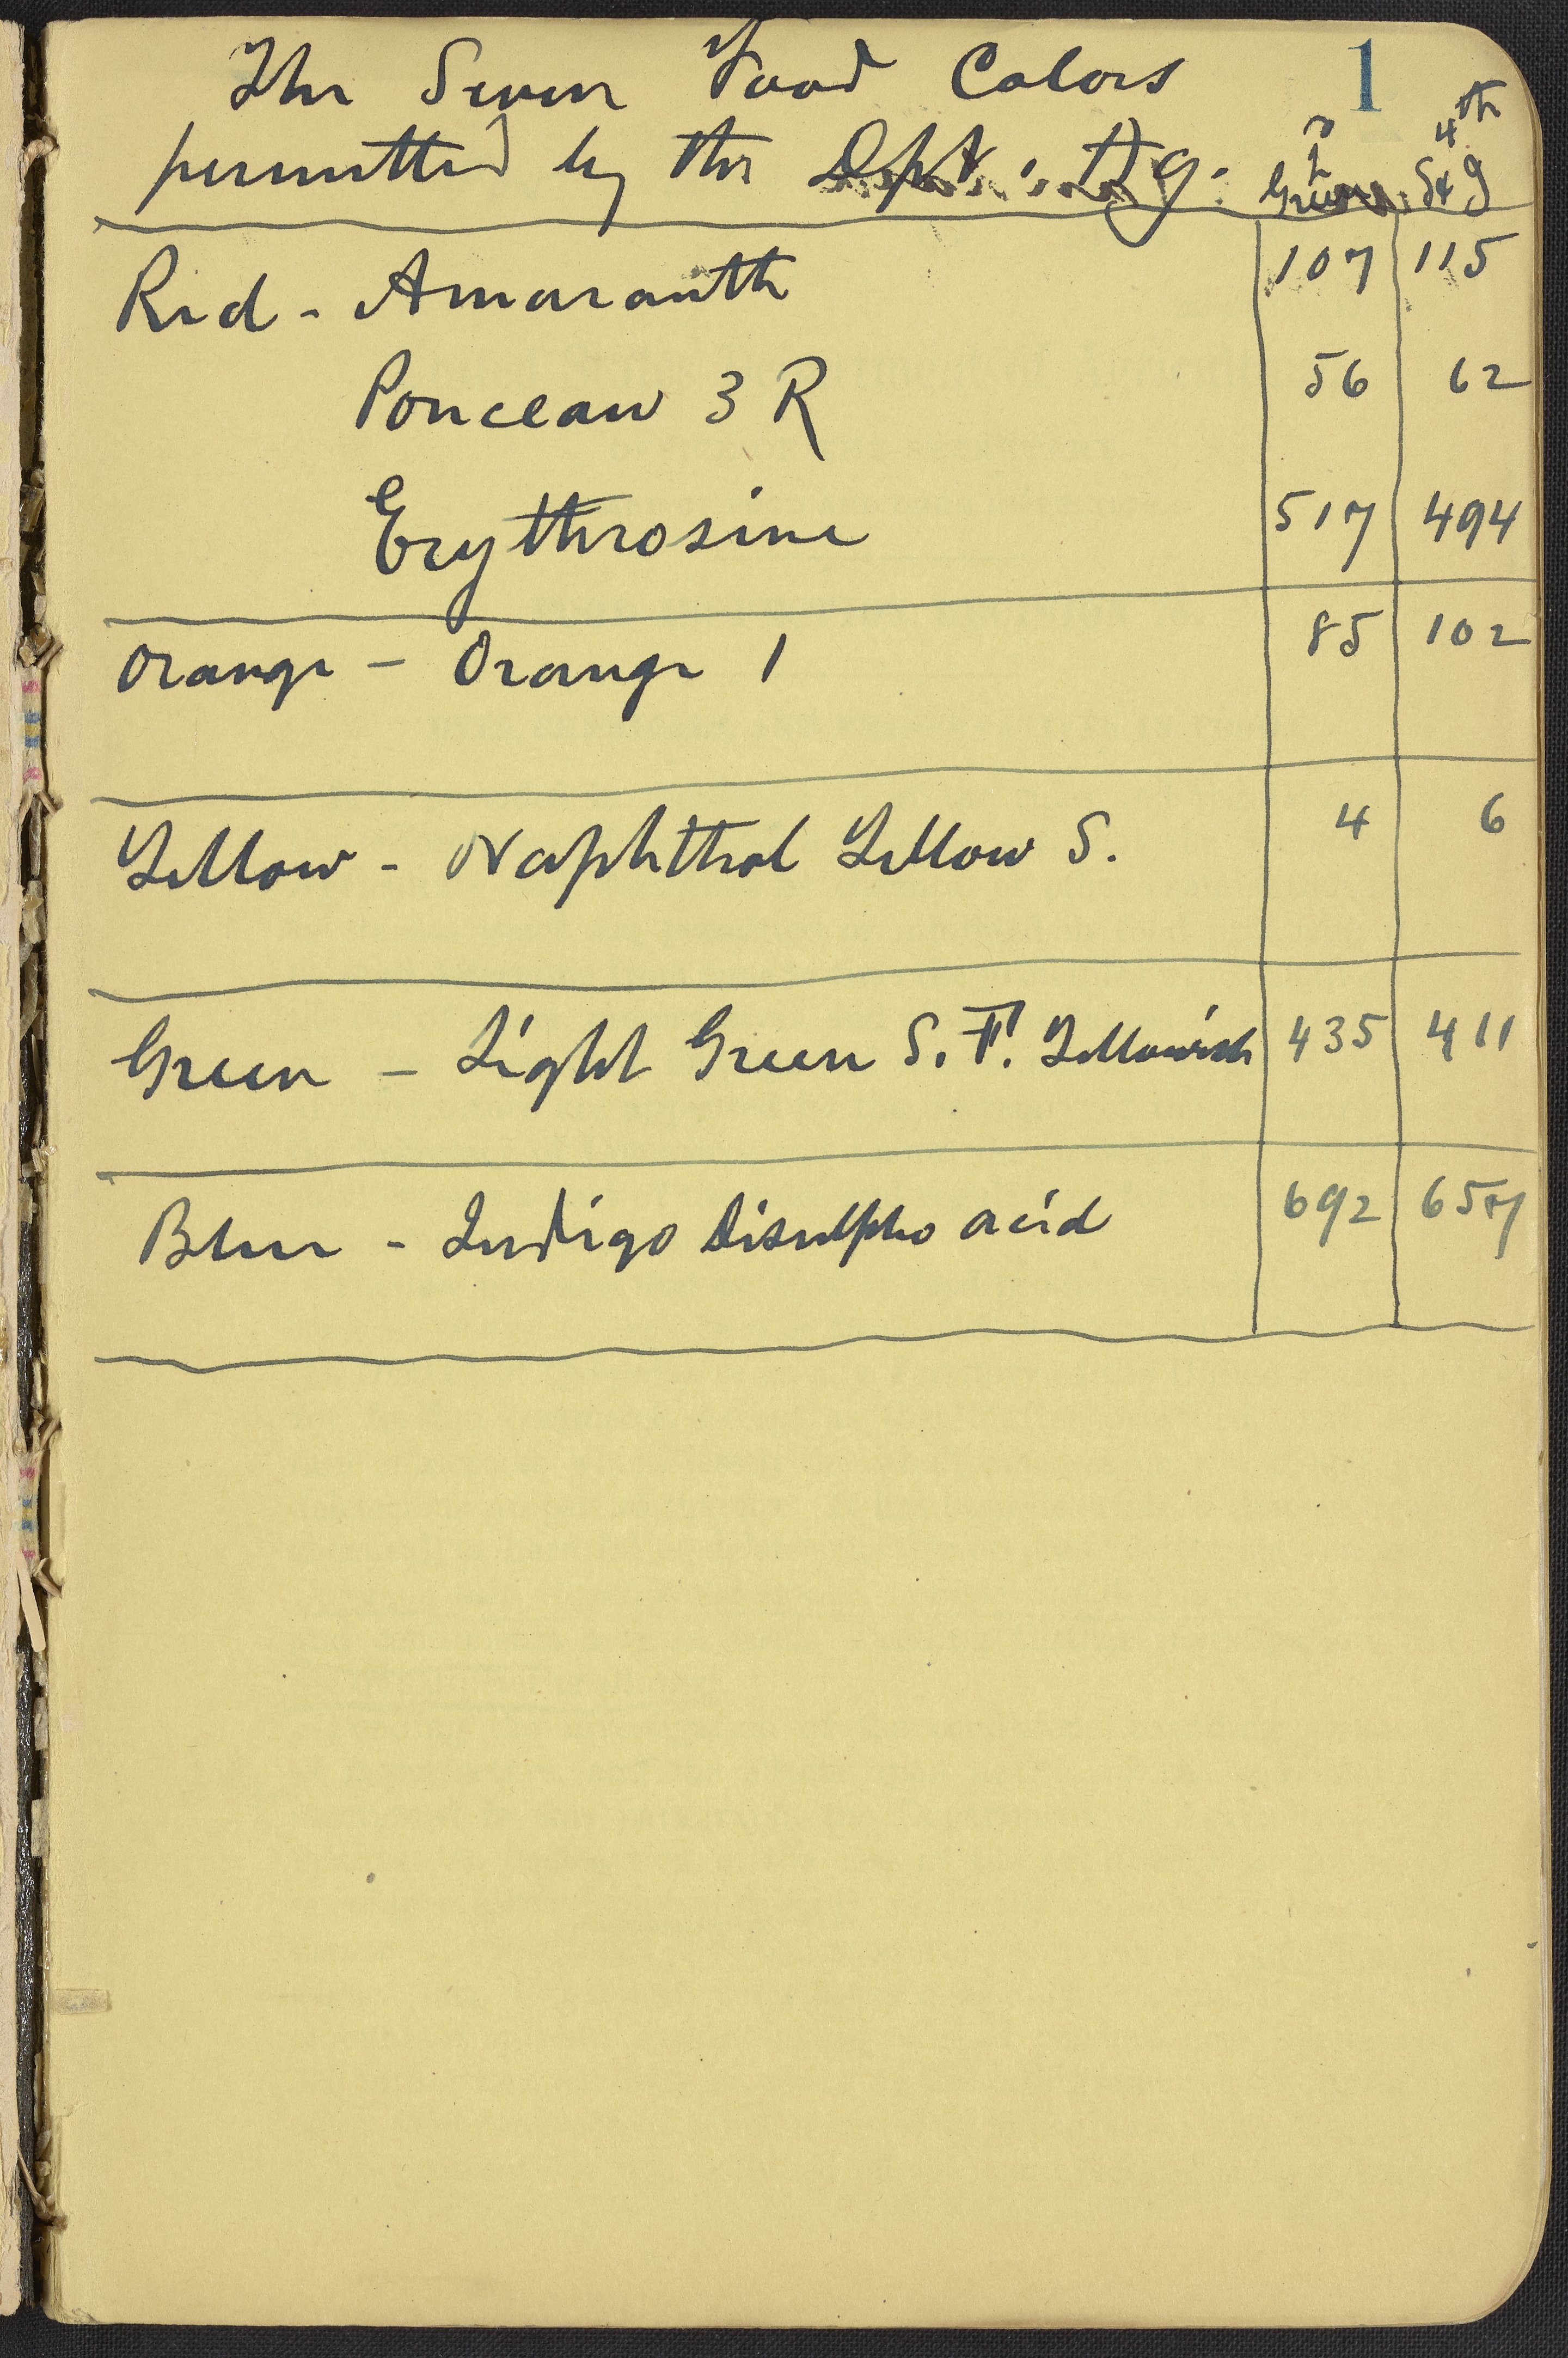 The Seven Food Colors 1
permitted by the Dpt. Ag. Green 4th S & J
Red - Amaranth 107 115
Ponceau 3 R 56 62
Erythrosine 517 494
Orange - Orange 1 85 102
Yellow - Naphthol Yellow S. 4 6
Green - Light Green S. F. Yellowish 435 411
Blue - Indigo disulpho acid 692 657